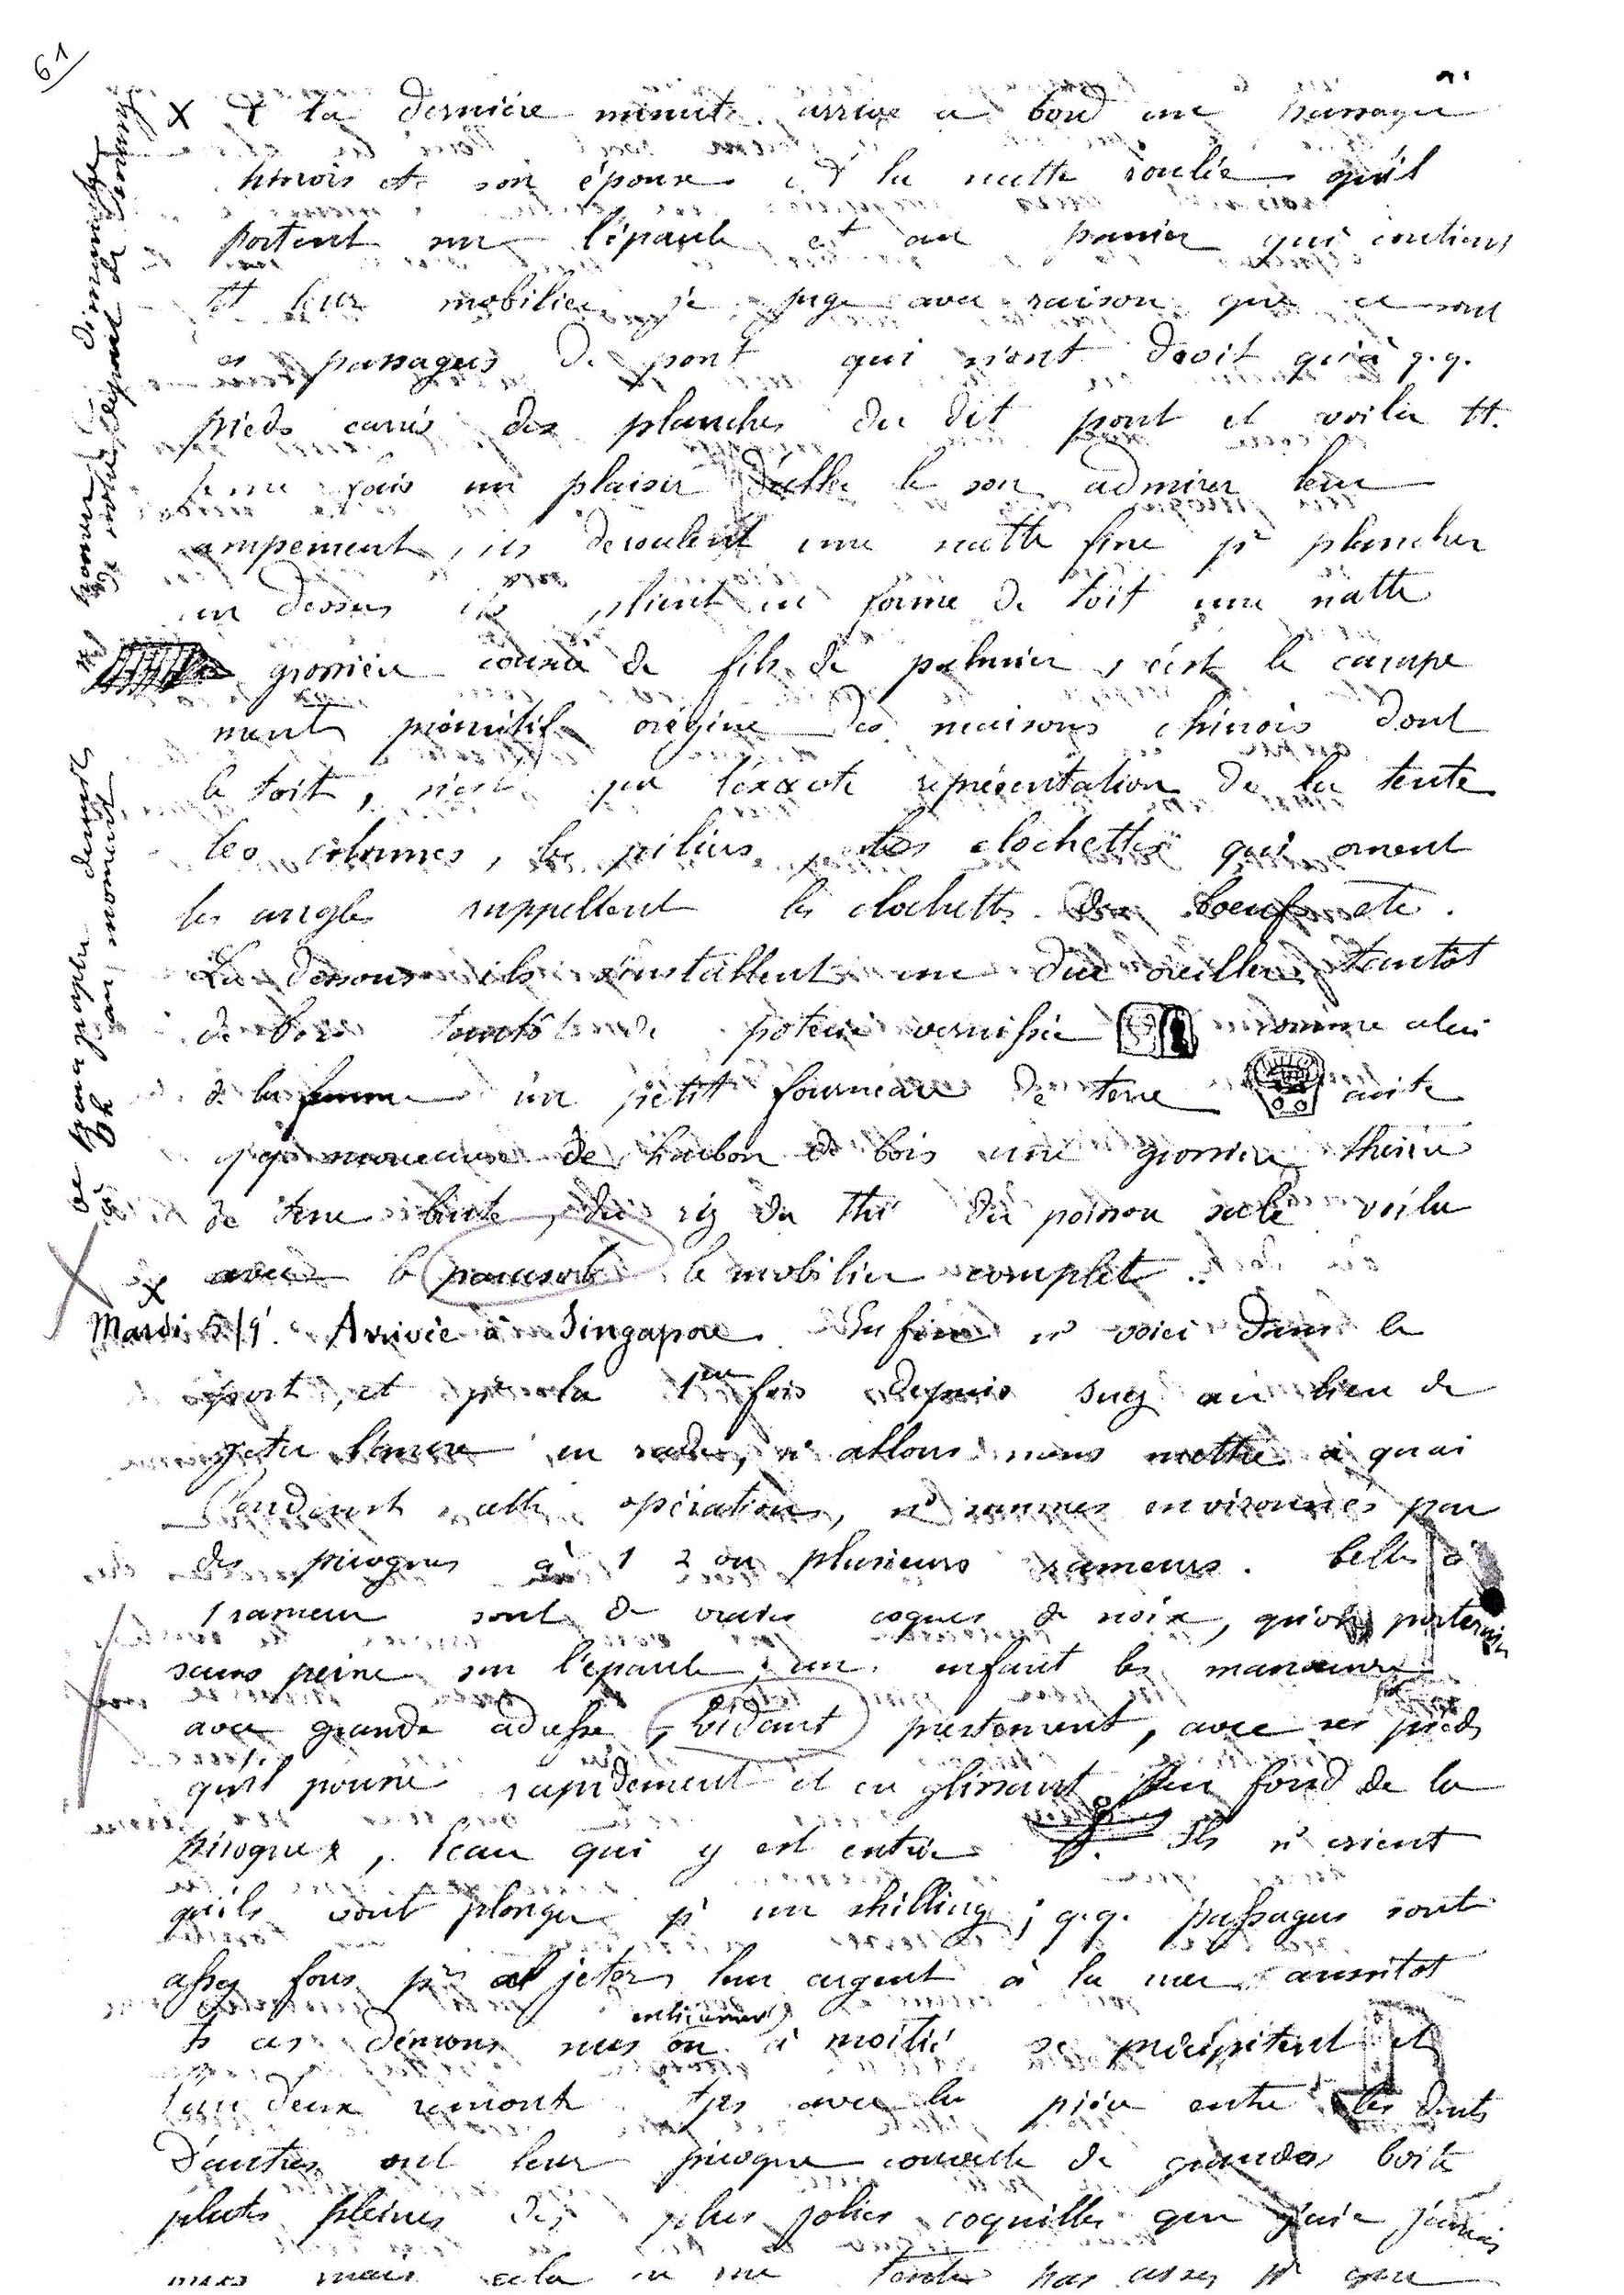 61
X A la dernière minute arrive a bord un passager
chinois et son épouse à la natte roulée qu'il
portent sur l'épaule et au panier qui contient
tt leur mobilier je juge avec raison que ce sont
des passagers de pont qui n'ont droit qu'à q.q.
pieds carrés des planches du dit pont et voilà tt.
Je me fais un plaisir d'aller le soir admirer leur
campement, ils deroulent une natte fine pr plancher
au dessus ils plient en forme de toit une natte
grossière cousue de fils de palmier, c'est le campe
ment primitif origine des maisons chinois dont
le toit, n'est que l'exacte représentation de la tente
les colonnes, les piliers, les clochettes qui ornent
les angles rappellent les clochettes des boeufs etc.
Là dessous ils s'installent un dur oreiller tantôt
de bois tantôt de poterie vernissée comme celui
de la femme un petit fourneau de terre cuite
q.q. morceaux de charbon de bois une grossière theière
de terre cuite, du riz du thé du poisson salé voilà
avec le parasol le mobilier complet.
X
Mardi 5/9. Arrivée à Singapore. Enfin ns voici dans le
port, et pr la 1ere fois depuis Suez au lieu de
jeter l'ancre en rade, ns allons nous mettre à quai
Pendant cette opération, ns sommes environnés par
des pirogues à 1 2 ou plusieurs rameurs. Celles à
1 rameur sont de vraies coques de noix, qu'on porterait
sans peine sur l'épaule, un enfant les manœuvre
avec grande adresse, vidant prestement, avec ses pieds
qu'il pousse rapidement et en glissant au fond de la
pirogue, l'eau qui y est entrée. Ils ns crient
qu'ils vont plonger pr un shilling; q.q. passagers sont
assez fous pr jeter leur argent à la mer aussitôt
ts ces démons nus entièrement ou à moitié se précipitent et
l'un deux remonte tjrs avec la pièce entre les dents
D'autres ont leur pirogue couverte de grandes boite
plates pleines des plus jolies coquilles que j'aie jamais
vues mais cela ne me tente pas assez pr que